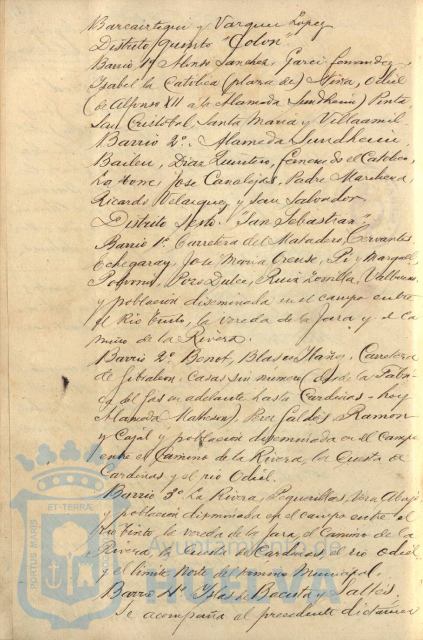 Barcaiztegui y Vazquez Lopez
Distrito quinto "Colon"
Barrio 1º Alonso Sanchez, Garci Fernandez,
Isabel la Catolica (plaza de) Niña, Odiel
(de Alfonso XII a la Alameda Sundheim) Pinta
San Cristobal, Santa Maria y Villaamil
Barrio 2º. Alameda Sundheim,
Bailen, Diaz Quintero, Fernando el Catolico,
José Canalejas, Padre Marchena,
Ricardo Velazquez y San Salvador
Distrito Sesto. "San Sebastian"
Barrio 1º Carretera del Matadero, Cervantes,
Echegaray, José Maria Orense, Pi y Margall,
Porvenir, Pozo Dulce, Ruiz Zorrilla, Valbuena
y población diseminada en el campo entre
el Rio Tinto, la vereda de la Jara y el ca
mino de la Rivera.
Barrio 2º Benot, Blas Carretera
de Gibraleon, casas sin número (desde la Fabri-
ca del Gas en adelante hasta Cardeñas - hoy
Alameda Matheson). Perez Galdós Ramon
y Cajal y población diseminada en el campo
entre el Camino de la Rivera, la Cuesta de
Cardeñas y el rio Odiel.
Barrio 3º La Rivera, Peguerillas,
y población diseminada en el campo entre el
Rio Tinto, la vereda de la Jara, el Camino de la
Rivera, la Cuesta de Cardeñas, el rio Odiel
y el limite Norte del termino Municipal.
Barrio 4º Islas de Bacuta y Saltés.
Se acompaña al precedente dictamen
PORTUS MARIS ET TERRÆ
Ayuntamiento de
HUELVA